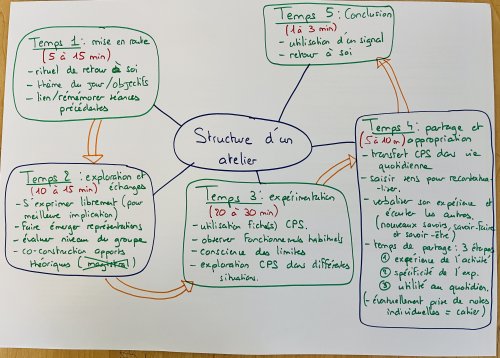 Temps 1 : mise en route
(5 à 15 min)
- rituel de retour à soi
- thème du jour/objectifs
- lien/remémorer séances
précédentes
Temps 5 : Conclusion
(1 à 3 min)
- utilisation d'un signal
- retour à soi
Structure d'un
atelier
Temps 2 : exploration et
(10 à 15 min) échanges
- S'exprimer librement (pour
meilleure implication)
- Faire émerger représentations
- évaluer niveau du groupe
- co-construction apports
théoriques (magistral)
Temps 3 : expérimentation
(20 à 30 min)
- utilisation fiche(s) CPS.
- observer fonctionnements habituels
- conscience des limites
- exploration CPS dans différentes
situations.
Temps 4 : partage et
(5 à 10 m) appropriation
- transfert CPS dans vie
quotidienne.
- saisir sens pour recontextua-
-liser.
- verbaliser son expérience et
écouter les autres.
(nouveaux savoirs, savoir-faire
et savoir-être)
- temps de partage : 3 étapes
① expérience de l'activité
② spécificité de l'exp.
③ utilité au quotidien.
(- éventuellement prise de notes
individuelles = cahier)